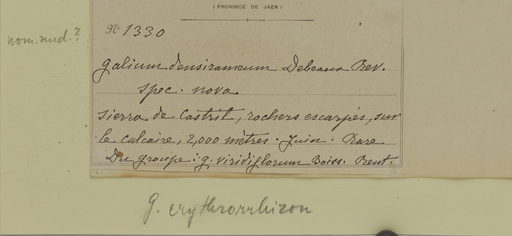 ( PROVINCE DE JAEN )
nom. nud. ?
Nº 1330
Galium densirameum Debeaux Rev.
spec. nova
Sierra de Castril, rochers escarpés, sur
le calcaire, 2,000 mètres. Juin. Rare
Du groupe : G. viridiflorum Boiss. Reut.
G. erythrorrhizon